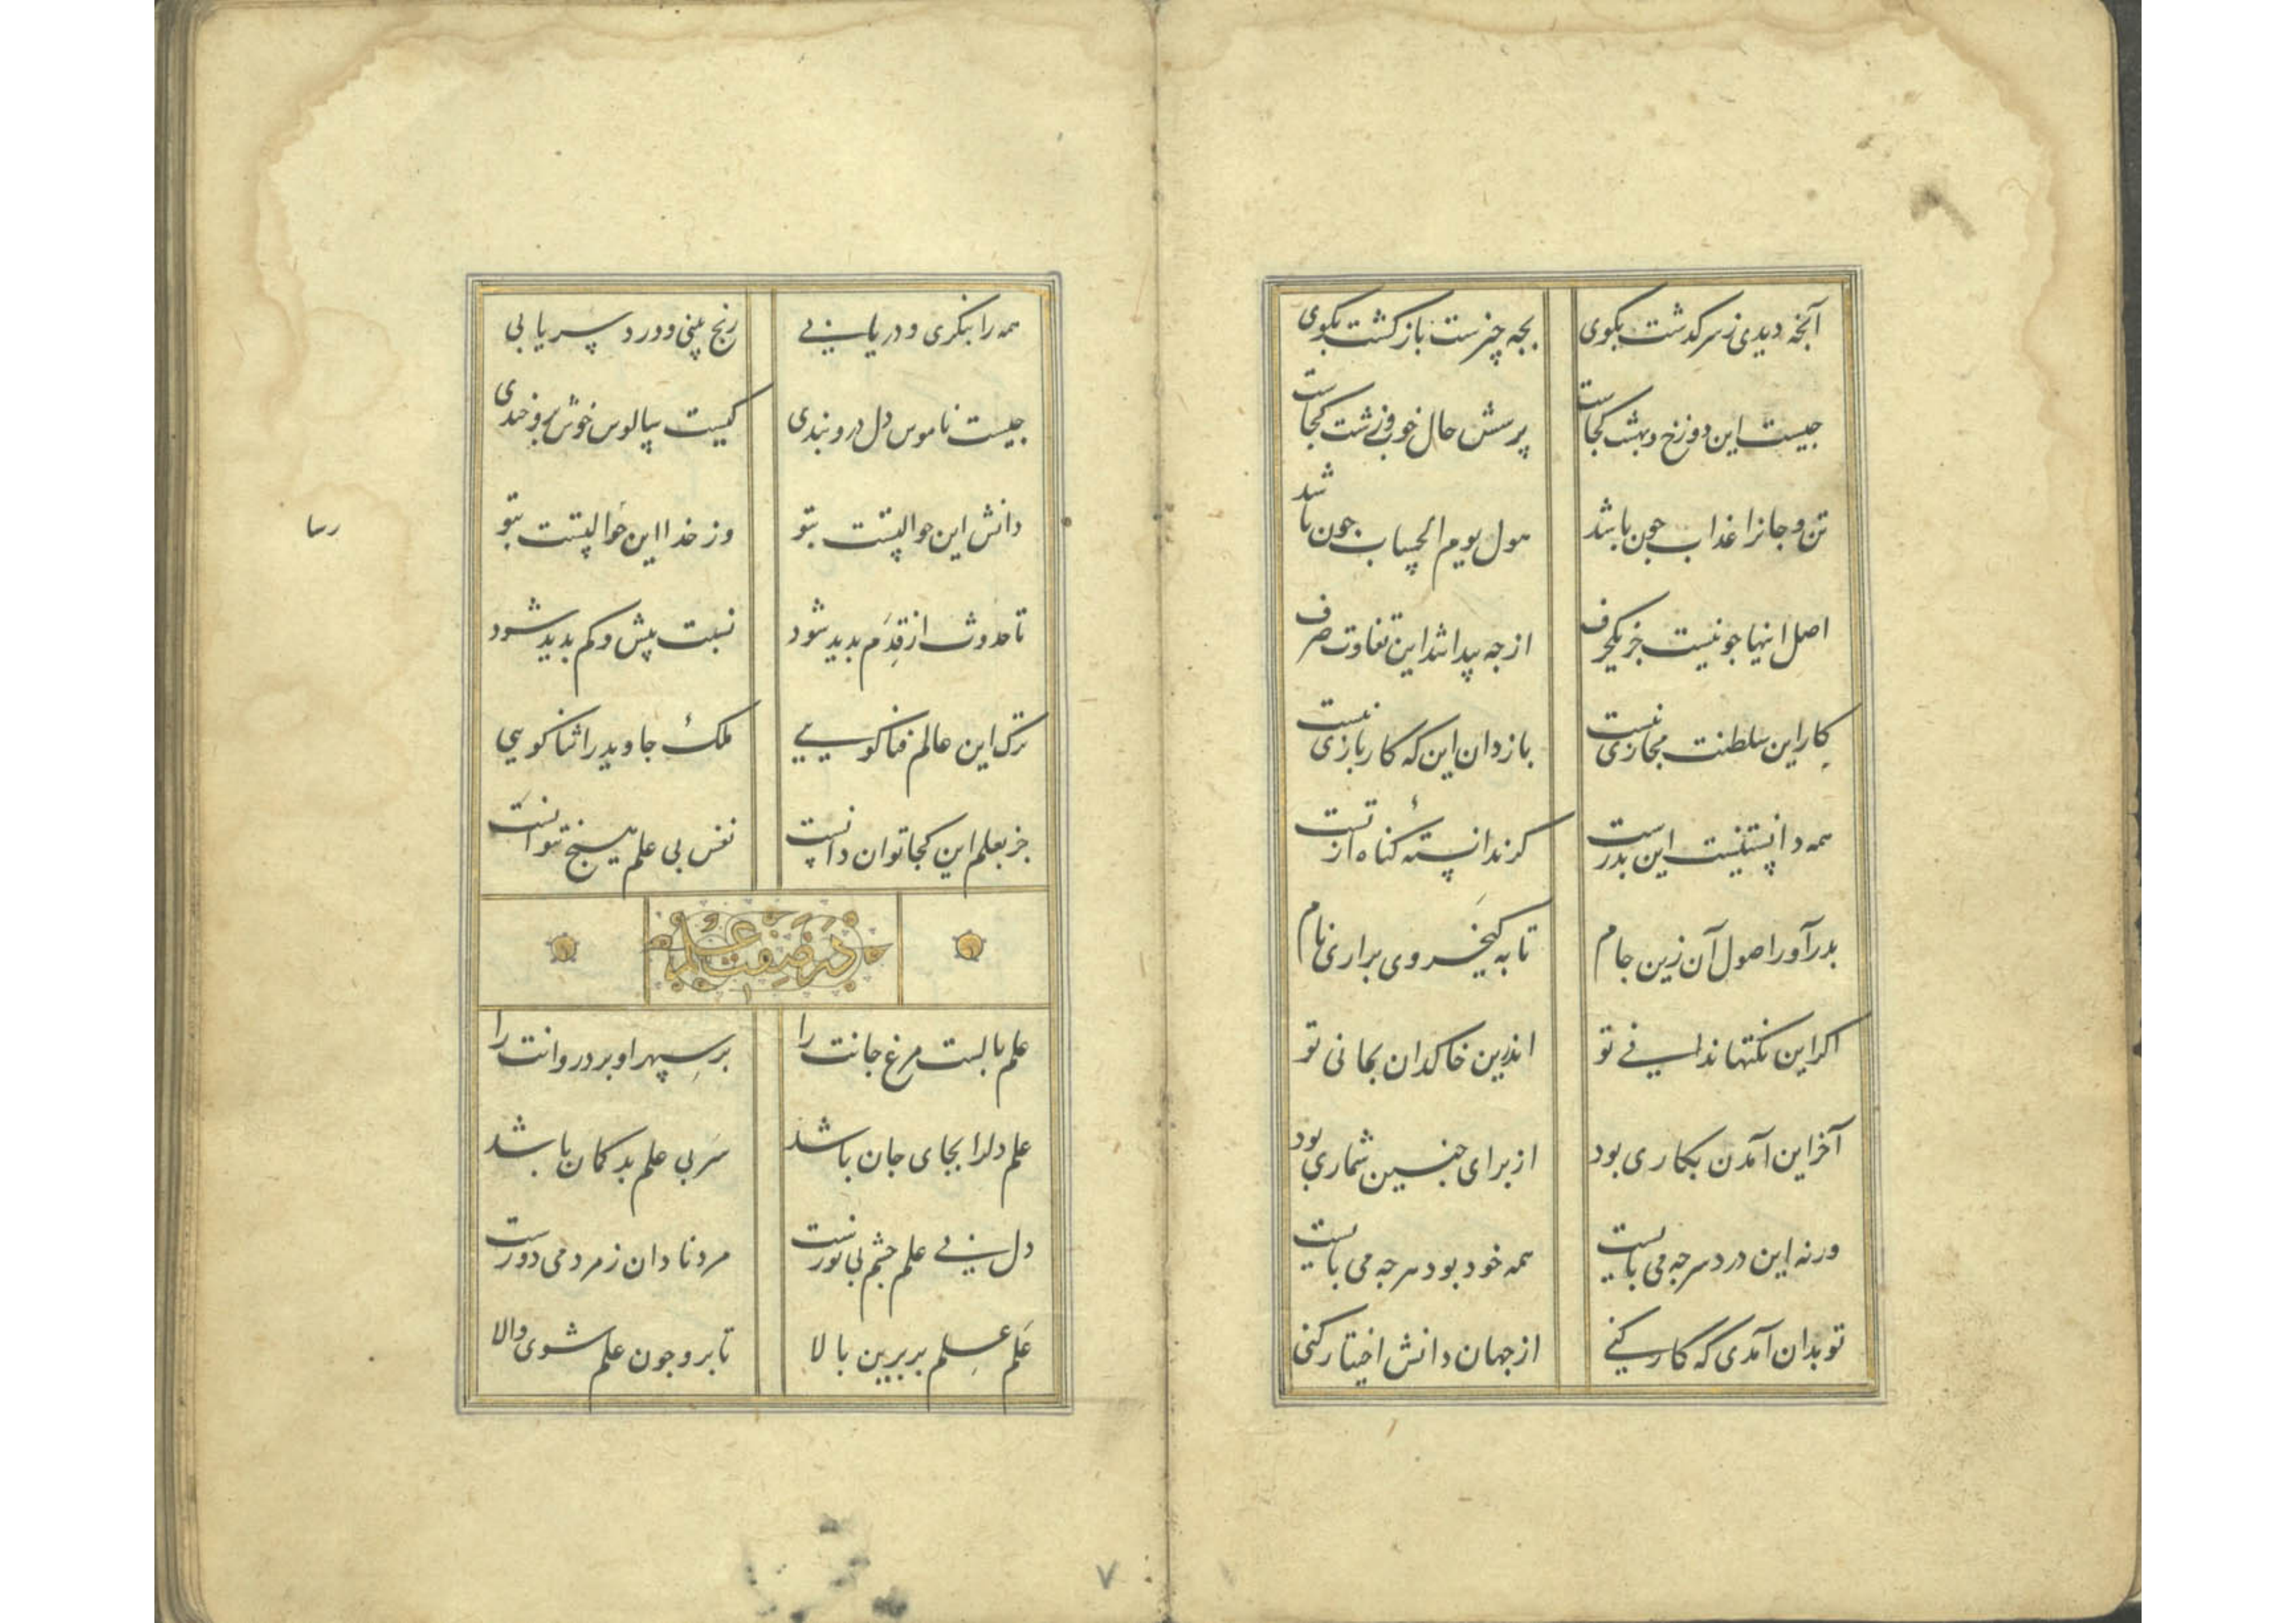 آنجه دیدی ز سرکذشت بکوی بجه چیزست بازکشت بکوی
جیست این دوزخ و بهشت کجاست پرسش حال خوب و زشت کجاست
تن و جانرا عذاب جون باشد هول یوم الحساب جون باشد
اصل اینها جو نیست جز یکحرف از جه پیدا شد این تفاوت صرف
کار این سلطنت مجازی نیست بازدان این که کار بازی نیست
همه دانستنیست این بدرست کر ندانستهٔ کناه از تست
بدرآور اصول آن زین جام تا به کیخسروی براری نام
اکر این نکتها ندانی تو اندرین خاکدان بمانی تو
آخر این آمدن بکاری بود از برای جنین شماری بود
ورنه این دردسر جه می بایست همه خود بود هرجه می بایست
تو بدان آمدی که کار کنی از جهان دانش اختیار کنی
همه را بنکری و دریابی رنج بینی و درد سر یابی
جیست ناموس دل درو بندی کیست سالوس خوش برو خندی
دانش این حوالتست بتو وز خدا این حوالتست بتو
تا حدوث از قِدَم بدید شود نسبت بیش و کم بدید شود
ترک این عالم فنا کویی ملکٔ جاوید را ثنا کویی
جز بعلم این کجا توان دانست نفس بی علم هیج نتوانست
در صفت علم
علم بالست مرغ جانت را بر سِپهر او برد روانت را
علم دلرا بجای جان باشد سَر بی علم بدکمان باشد
دل بی علم جشم بی نورست مرد نادان ز مردمی دورست
عَلم عِلم بر برین بالا تا برو جون علم شوی والا
رسا
۷